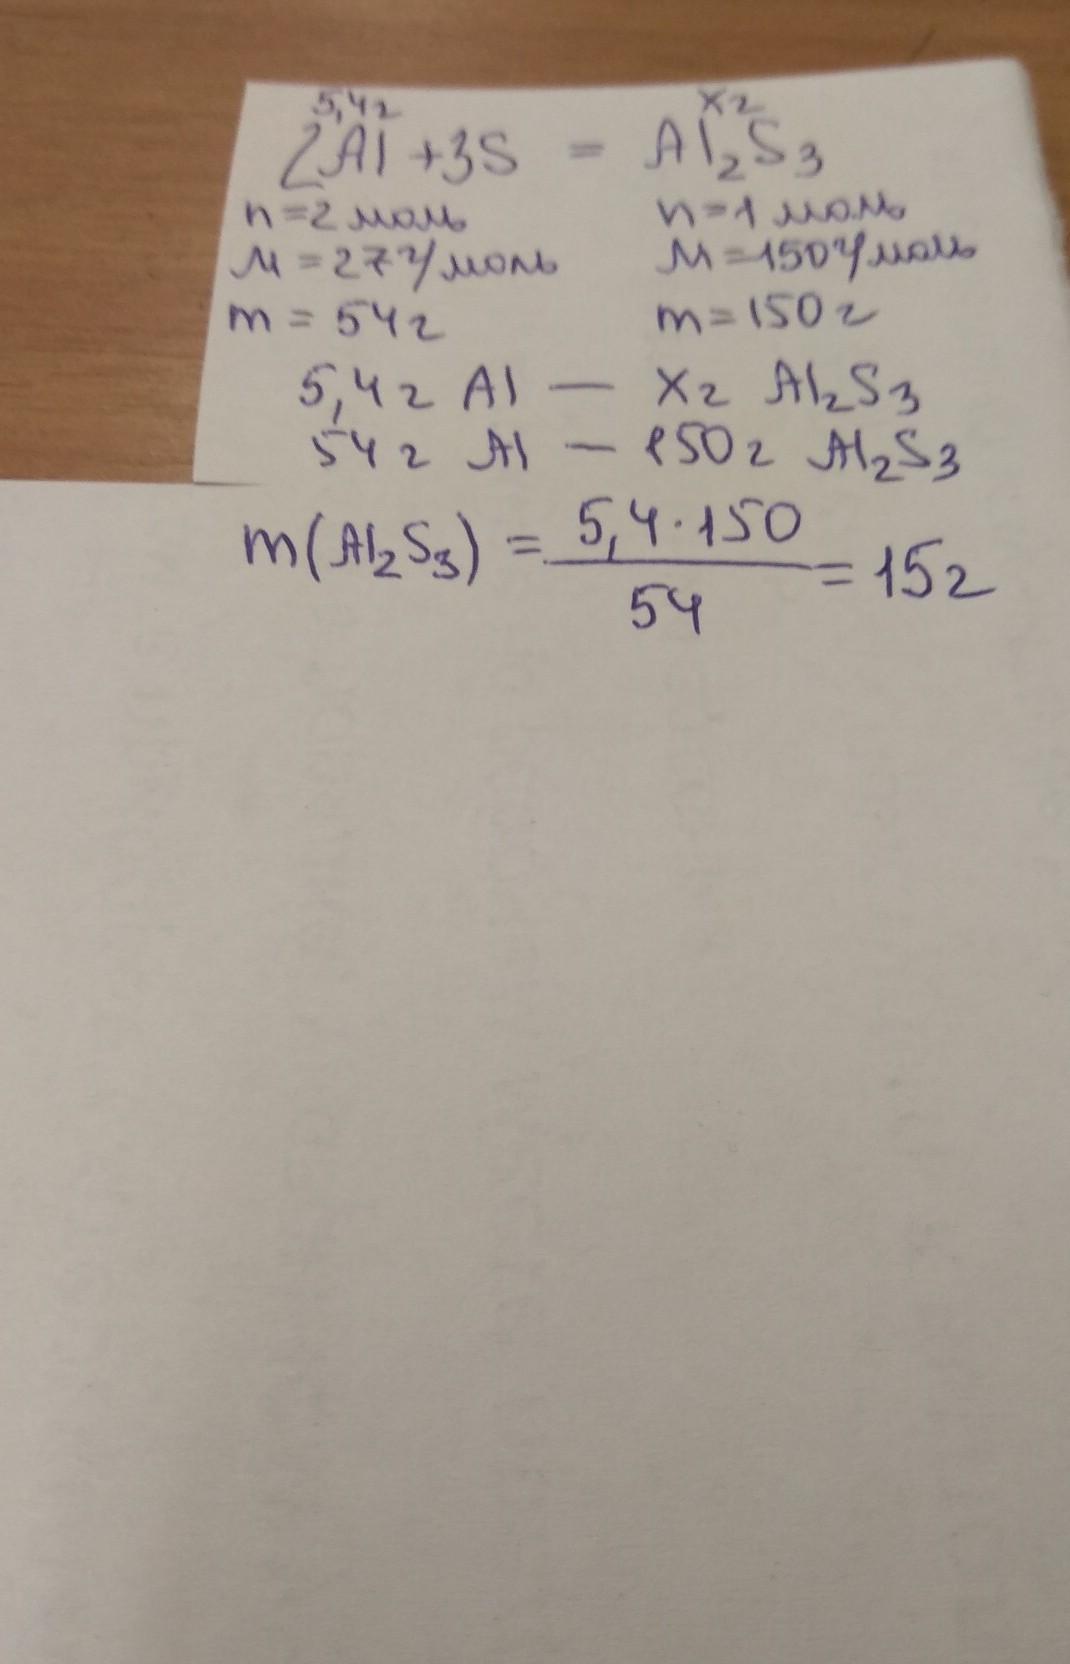 5,4г xг
2Al + 3S = Al₂S₃
n = 2 моль n = 1 моль
M = 27 г/моль M = 150 г/моль
m = 54 г m = 150 г
5,4 г Al — x г Al₂S₃
54 г Al — 150 г Al₂S₃
m(Al₂S₃) = 5,4 · 150 / 54 = 15 г